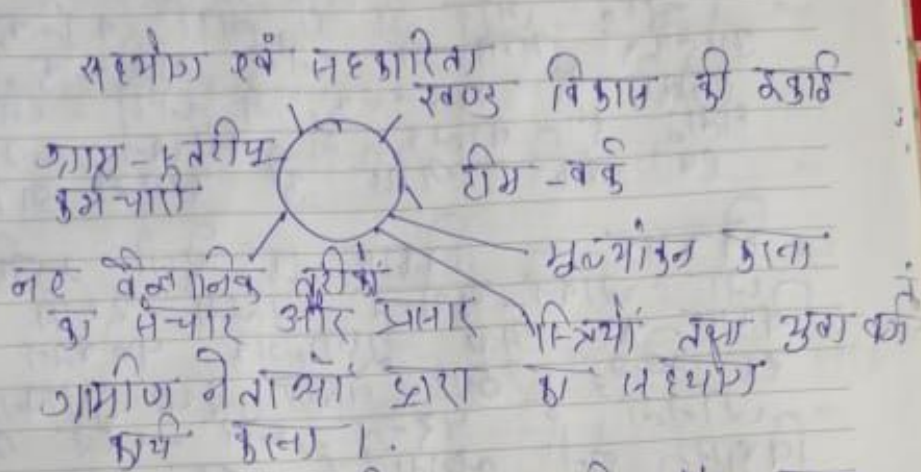 सहयोग एवं सहकारिता
खण्ड विकास की इकाई
ग्राम-स्तरीय
कर्मचारी
टीम-वर्क
मूल्यांकन करना
नए वैज्ञानिक तरीकों
का संचार और प्रसार
स्त्रियों तथा युवा वर्ग
का सहयोग
ग्रामीण नेताओं द्वारा
कार्य करना।